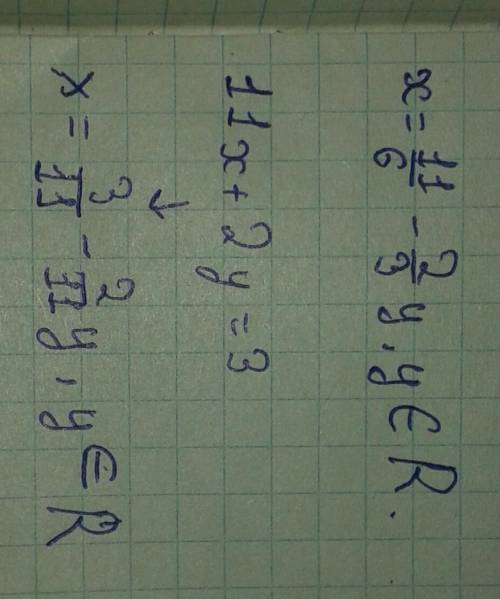 x = 11/6 - 2/3 y, y ∈ R.
11x + 2y = 3
↓
x = 3/11 - 2/11 y, y ∈ R